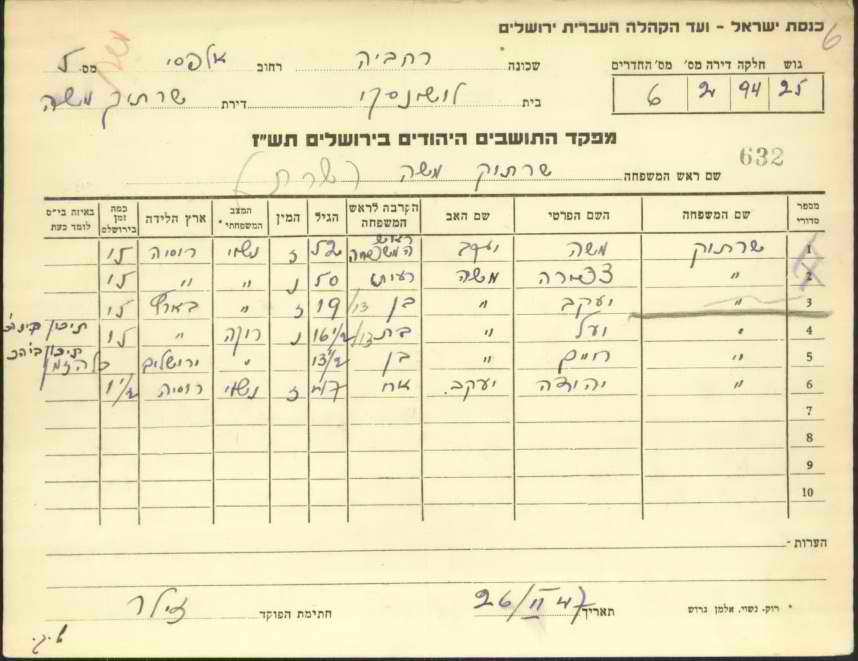 כנסת ישראל - ועד הקהלה העברית ירושלים
6
גוש חלקה דירה מס' מס' החדרים
25 94 2 6
שכונה רחביה רחוב אלפסי מס 5
בית לושינסקי דירת שרתוק משה
מפקד התושבים היהודים בירושלים תש"ז
632
שם ראש המשפחה שרתוק משה (שרת)
מספר סדורי שם המשפחה השם הפרטי שם האב הקרבה לראש המשפחה הגיל המין המצב המשפחתי • ארץ הלידה כמה זמן בירושלם באיזה בי"ס לומד כעת
1 שרתוק משה יעקב ראש המשפחה 52 ז נשוי רוסיה 15
2 " צפורה משה רעיה 50 נ " " 15
3 " יעקב " בן 19 ז " בארץ 15
4 " יעל " בת 16 1/2 נ רוקה " 15 תיכון
5 " חיים " בן 13 1/2 " ירושלים כל הזמן תיכון
6 " יהודה יעקב אח ז נשוי רוסיה 1 1/2
7
8
9
10
הערות -
• רוק, נשוי, אלמן גרוש
תאריך 26/II 47 חתימת הפוקד